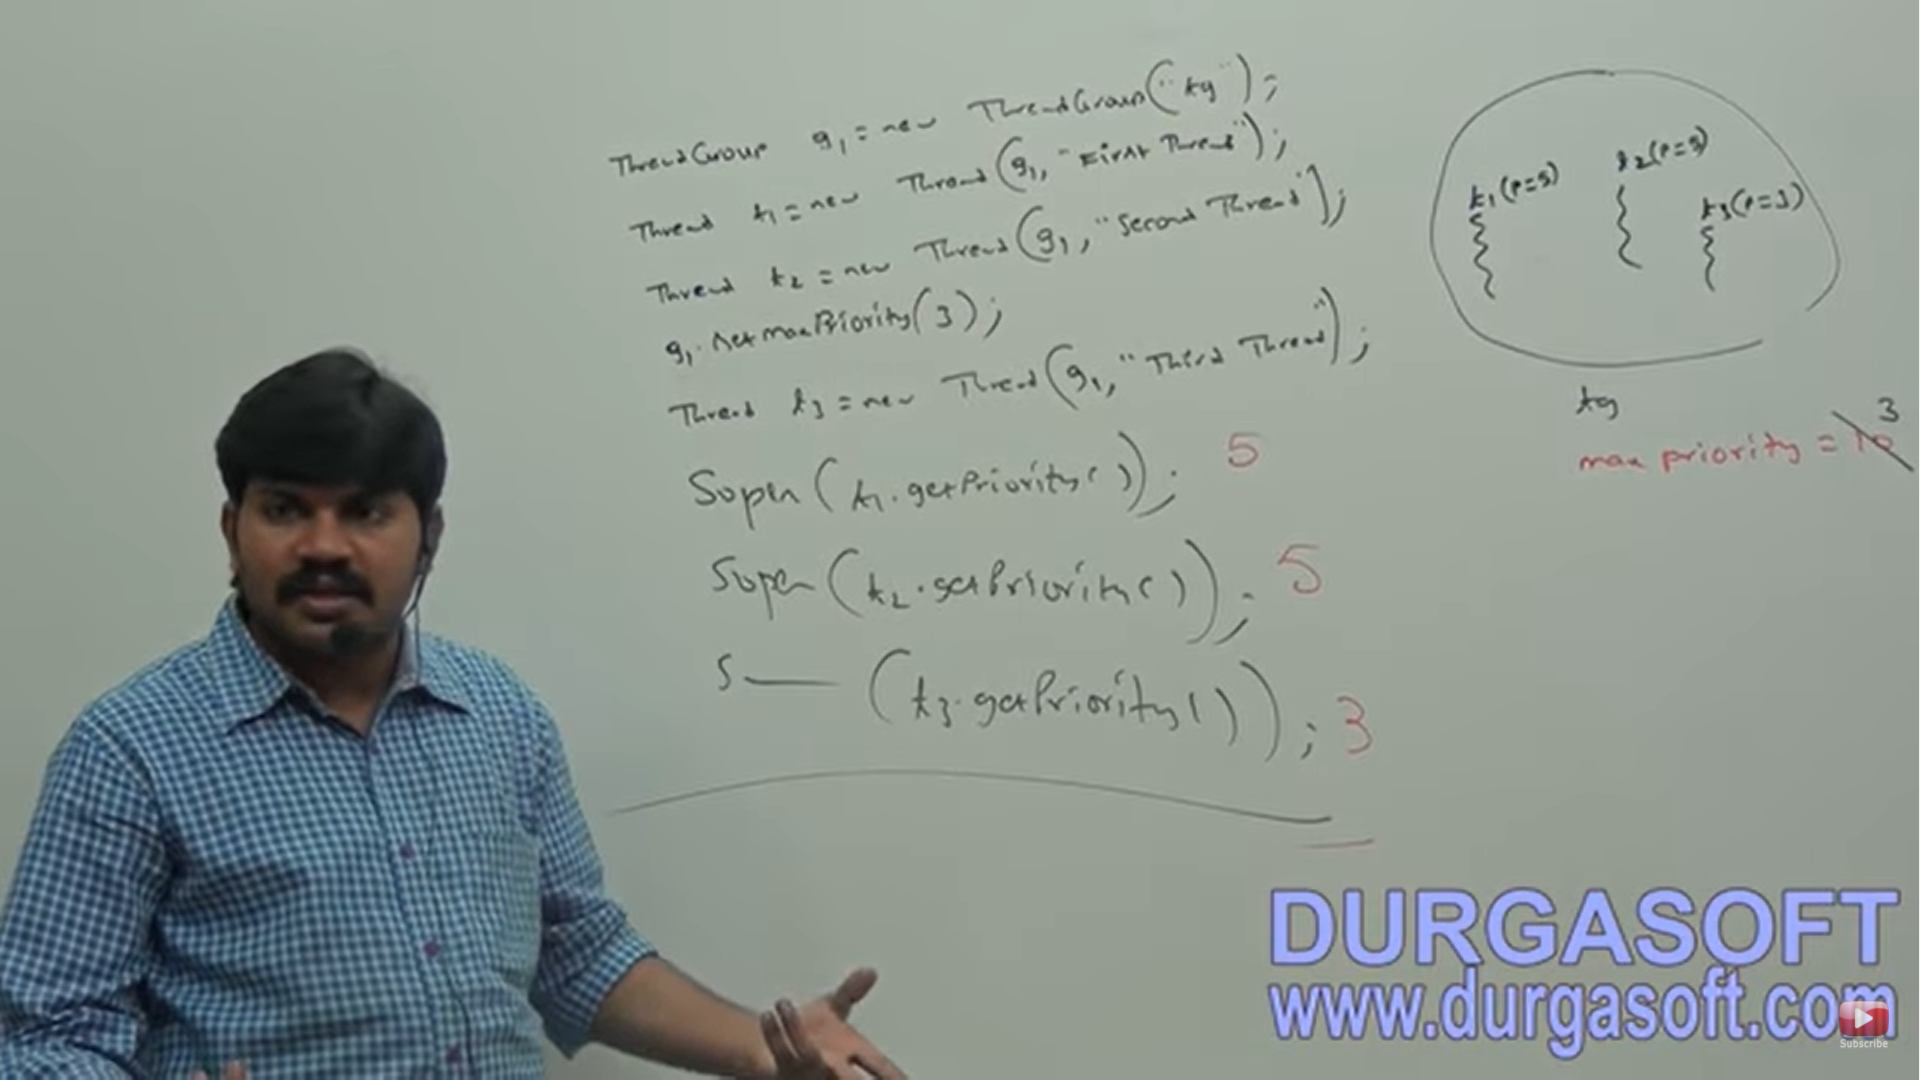 ThreadGroup g1 = new ThreadGroup("tg");
Thread t1 = new Thread(g1, "First Thread");
Thread t2 = new Thread(g1, "Second Thread");
g1.setMaxPriority(3);
Thread t3 = new Thread(g1, "Third Thread");
Sopln(t1.getPriority()); 5
Sopln(t2.getPriority()); 5
S——(t3.getPriority()); 3
t1(P=5)
t2(P=5)
t3(P=3)
tg
3
max priority = 10
DURGASOFT
www.durgasoft.com
Subscribe